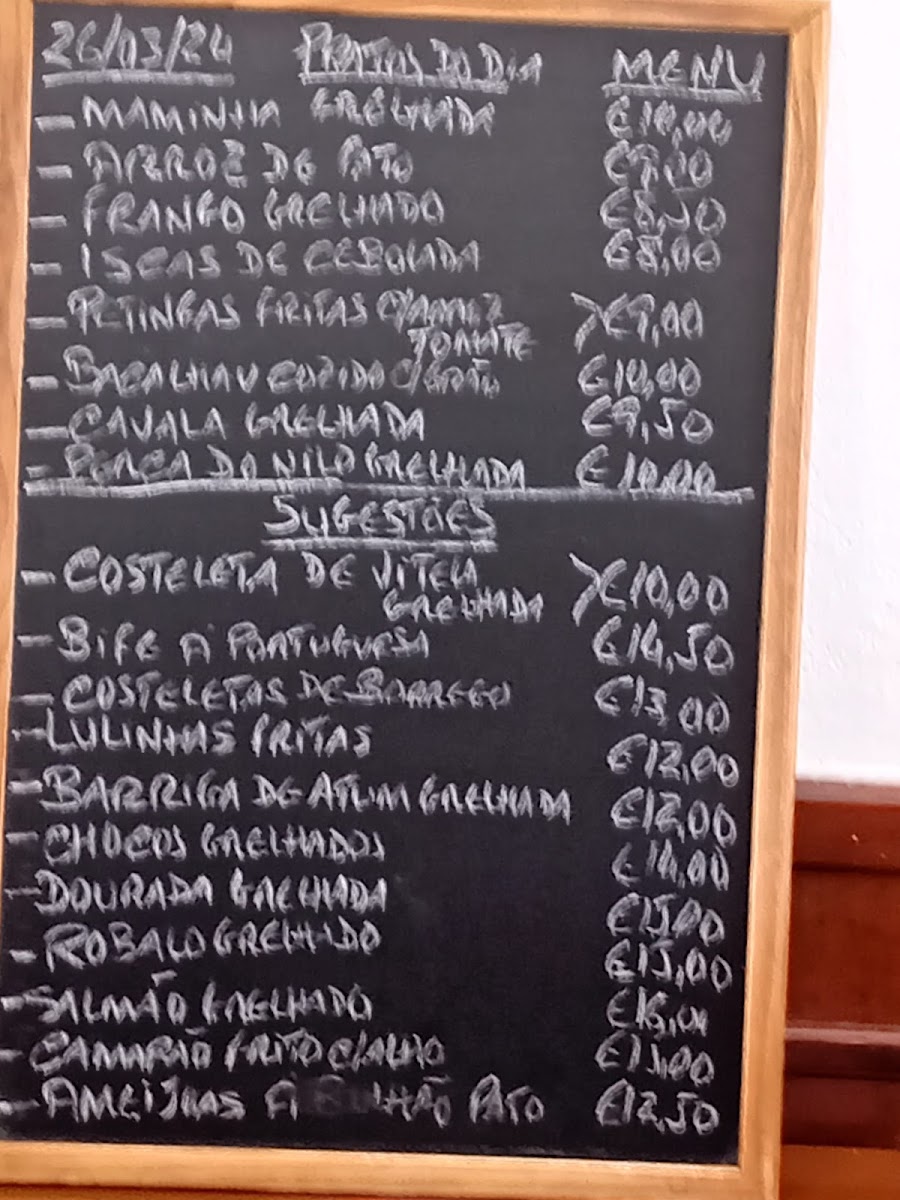 26/03/24 PRATOS DO DIA MENU
- MAMINHA GRELHADA €10,00
- ARROZ DE PATO €9,00
- FRANGO GRELHADO €8,50
- ISCAS DE CEBOLADA €8,00
- PETINGAS FRITAS C/ARROZ
TOMATE €9,00
- BACALHAU COZIDO C/GRÃO €10,00
- CAVALA GRELHADA €9,50
- PERCA DO NILO GRELHADA €10,00
SUGESTÕES
- COSTELETA DE VITELA
GRELHADA €10,00
- BIFE À PORTUGUESA €14,50
- COSTELETAS DE BORREGO €13,00
- LULINHAS FRITAS €12,00
- BARRIGA DE ATUM GRELHADA €12,00
- CHOCOS GRELHADOS €14,00
- DOURADA GRELHADA €15,00
- ROBALO GRELHADO €15,00
- SALMÃO GRELHADO
- CAMARÃO FRITO C/ALHO €15,00
- AMEIJOAS À BULHÃO PATO €12,50